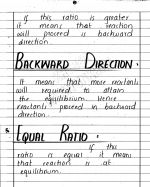 If this ratio is greater
it means that reaction
will proceed is backward
direction.
BACKWARD DIRECTION.
It means that more reactants
will required to attain
the equilibrium. Hence
reactants proceed in backward
direction.
EQUAL RATIO.
If this
ratio is equal it means
that reaction is at
equilibrium.